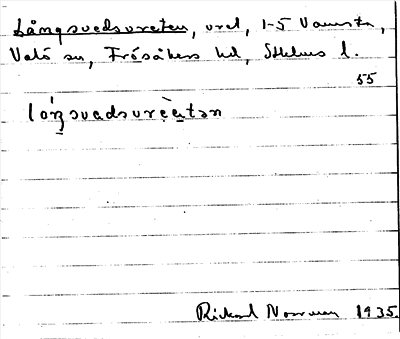 Långsvedsvreten, vret, 1-5 Vamsta,
Valö sn, Frösåkers hd, Sthlms l.
55
lóŋsvadsvrè̀ɛtən
Rickard Norrman 1935.